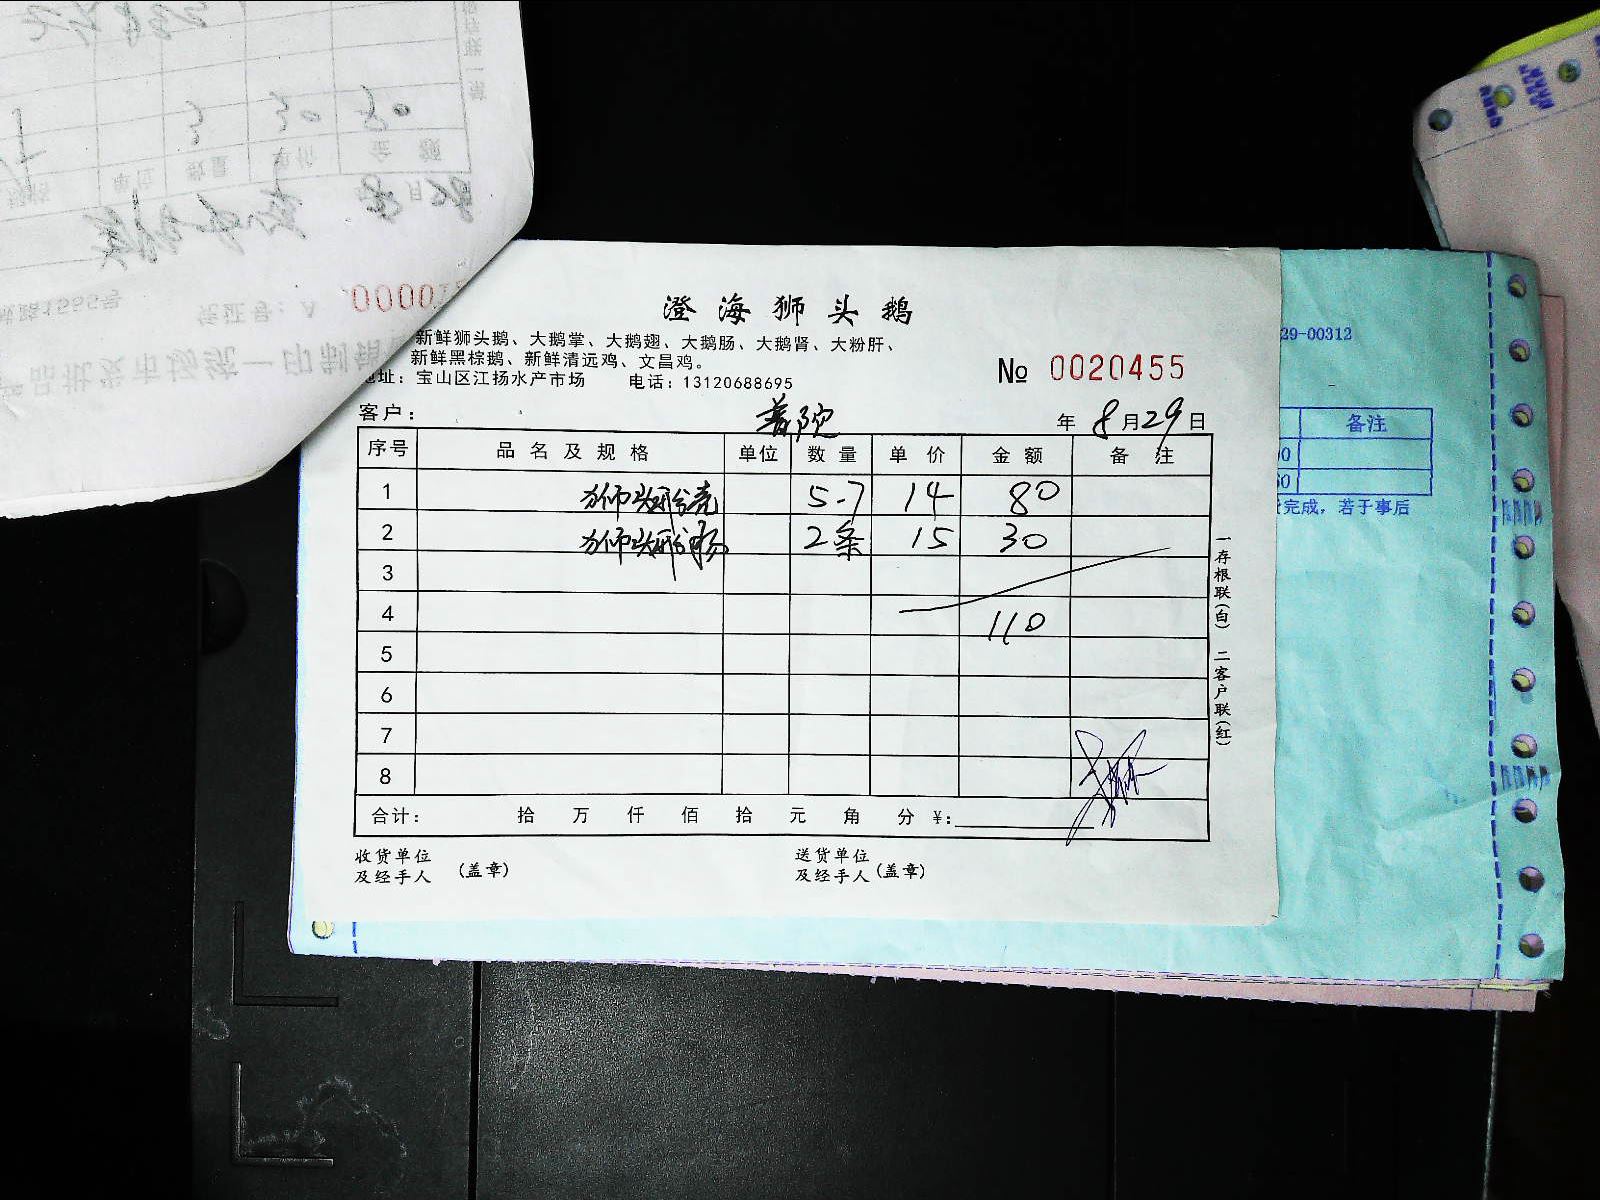 澄海狮头鹅
新鲜狮头鹅、大鹅掌、大鹅翅、大鹅肠、大鹅肾、大粉肝、
新鲜黑棕鹅、新鲜清远鸡、文昌鸡。
地址：宝山区江扬水产市场 电话：13120688695
№ 0020455
客户： 普陀 年 8 月 29 日
序号 品名及规格 单位 数量 单价 金额 备注
1 狮头鹅 5-7 14 80
2 狮头鹅 2条 15 30
3
4 110
5
6
7
8
合计： 拾 万 仟 佰 拾 元 角 分 ¥:
收货单位
及经手人 (盖章)
送货单位
及经手人 (盖章)
一存根联(白) 二客户联(红)
29-00312
备注
完成，若于事后